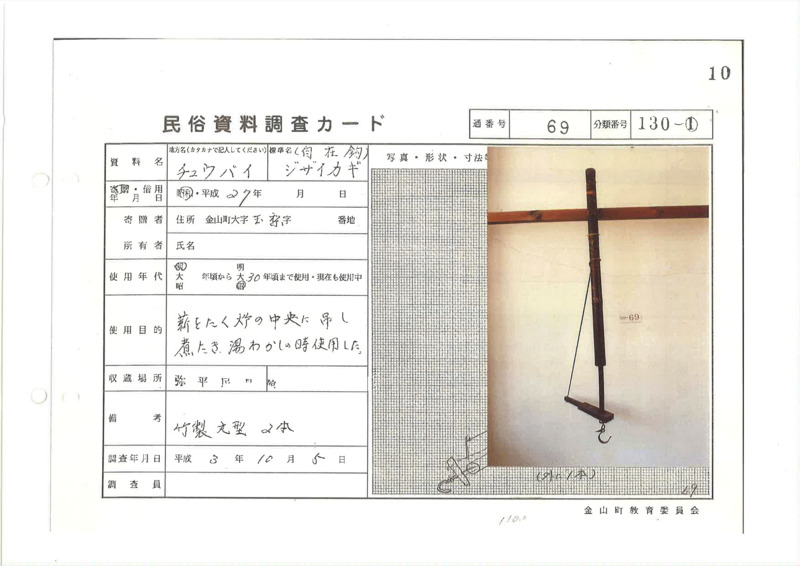 10
民俗資料調査カード
通番号 69 分類番号 130-①
資料名 地方名(カタカナで記入してください) チュウバイ 標準名(自在鈎) ジザイカギ
写真・形状・寸法
寄贈・借用年月日 昭和・平成 27年 月 日
寄贈者 住所 金山町大字玉梨字 番地
所有者 氏名
使用年代 明大昭 年頃から 明大昭30年頃まで使用・現在も使用中
使用目的 薪をたく炉の中央に吊し
煮たき 湯わかしの時使用した。
収蔵場所
備考 竹製 元型 2本
調査年月日 平成 3年 10月 5日
調査員
69
(外に1本)
69
金山町教育委員会